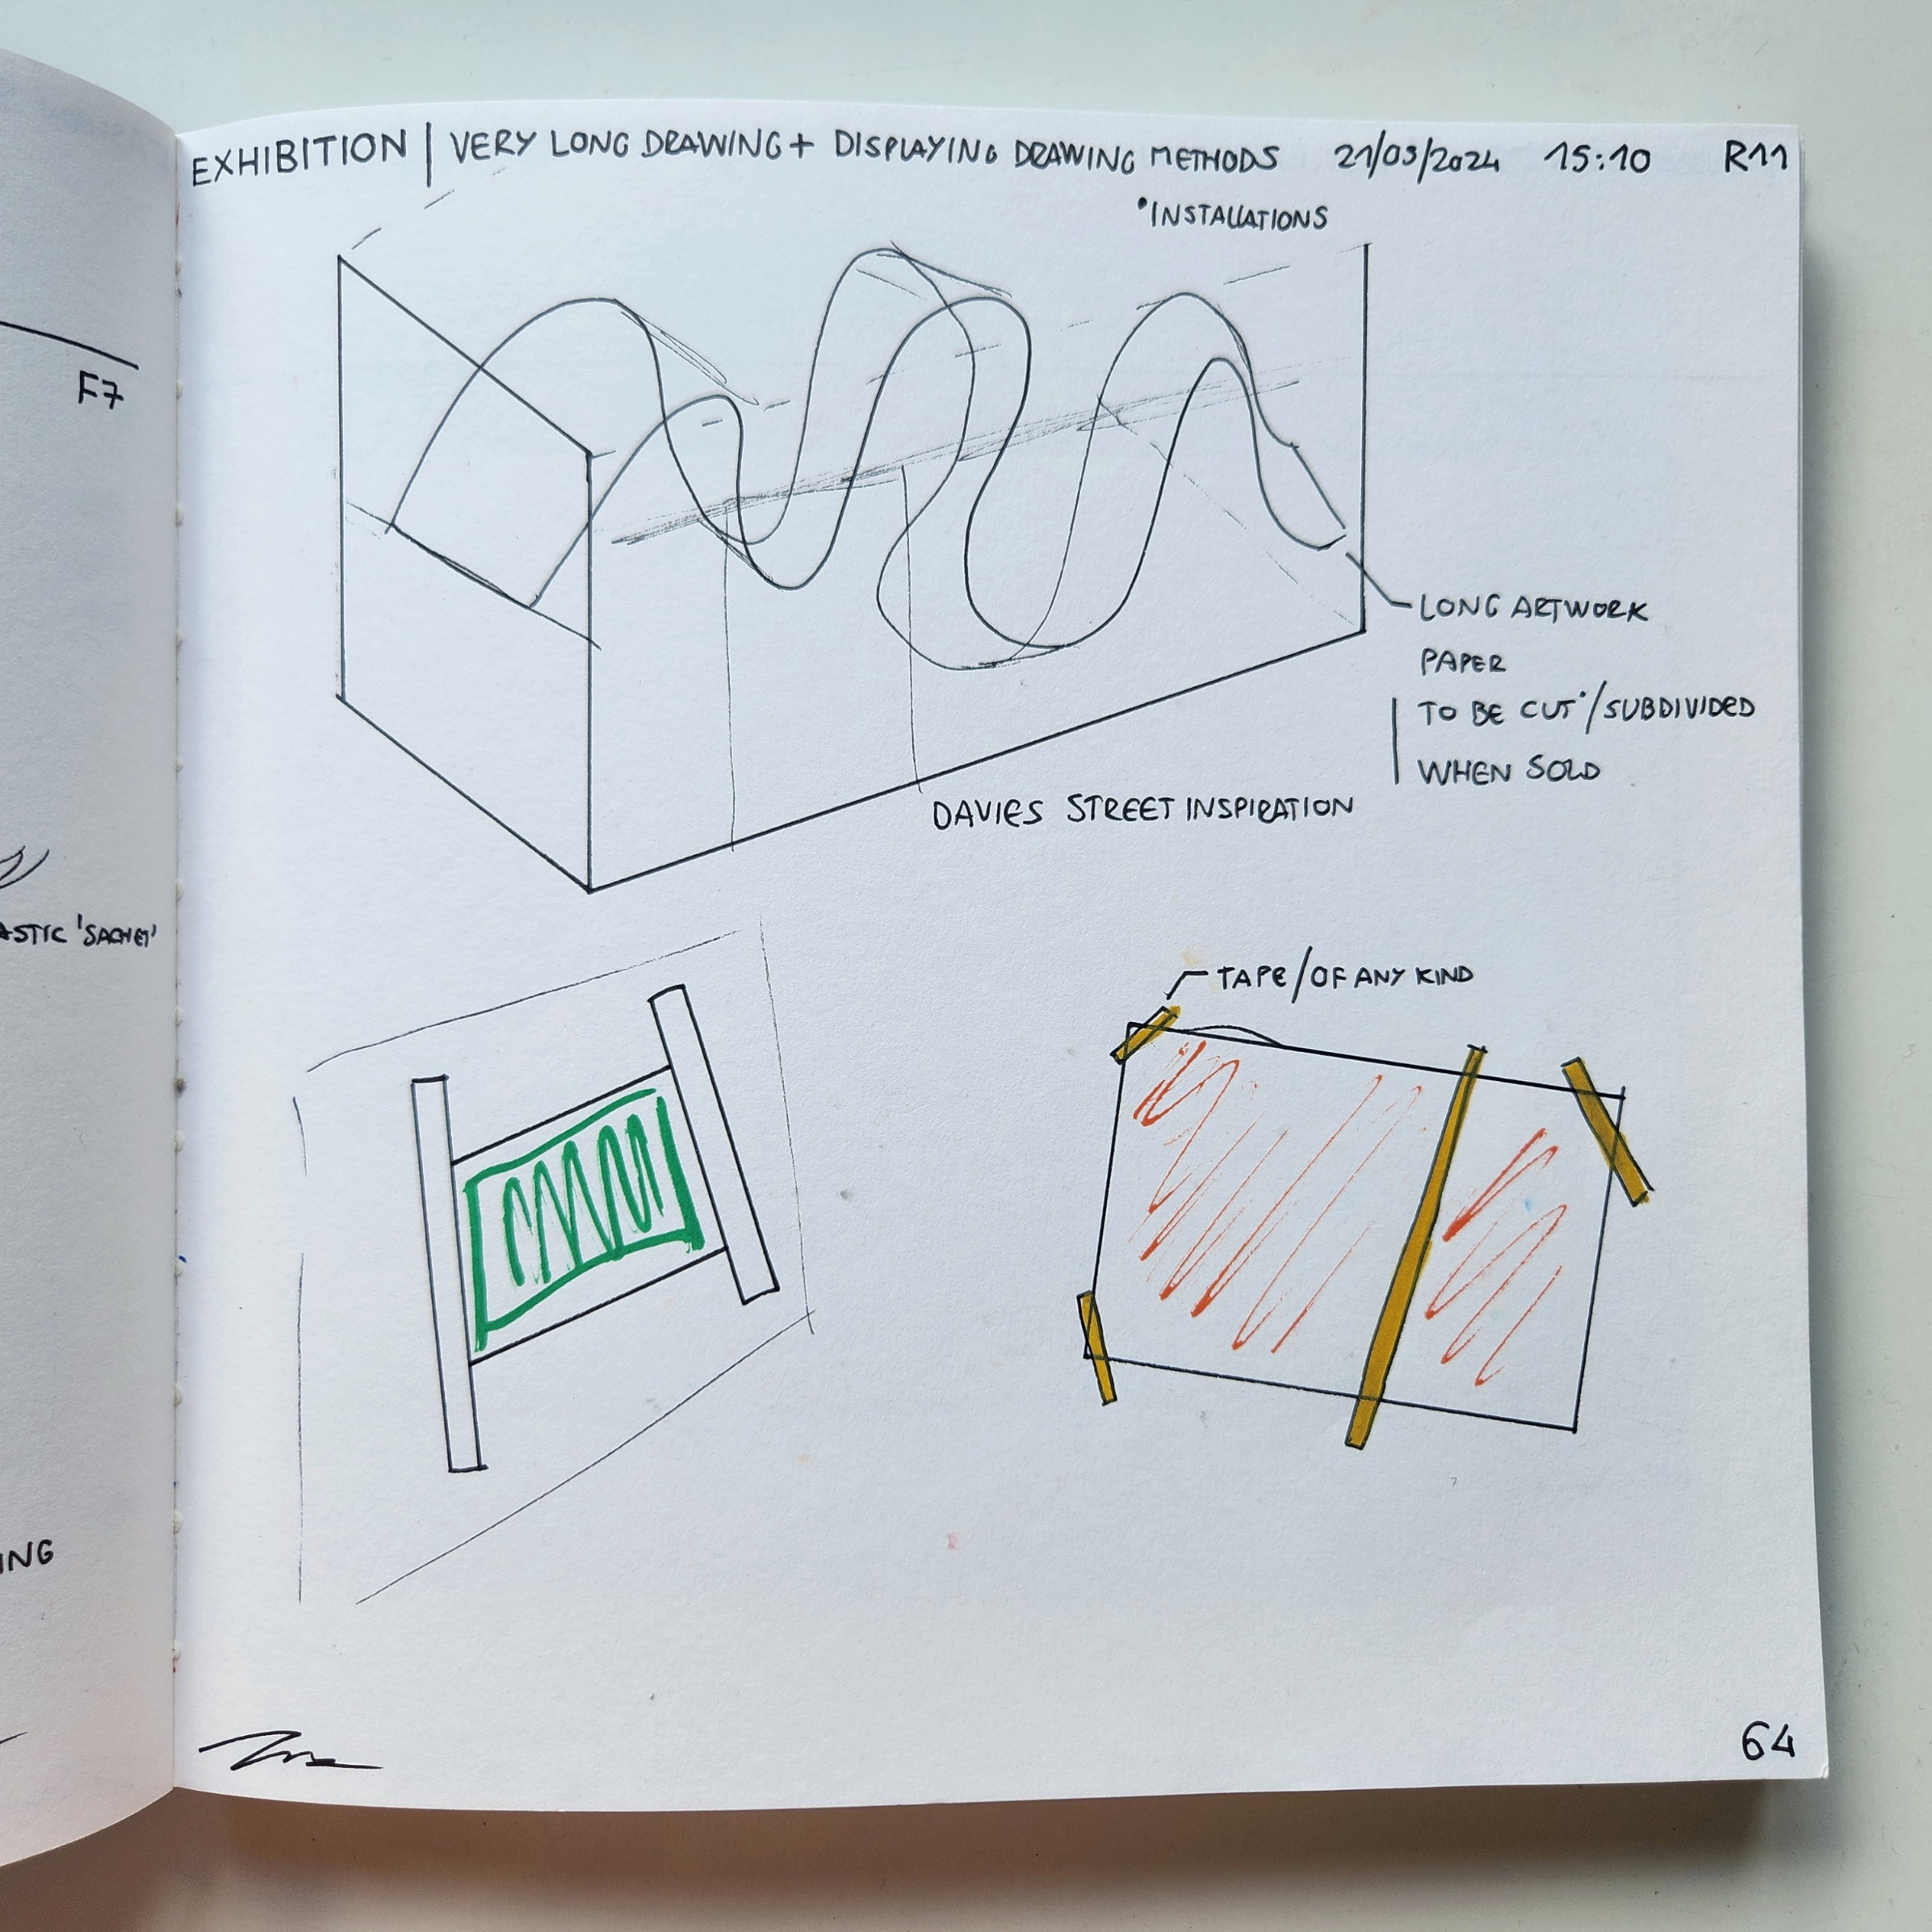 EXHIBITION | VERY LONG DRAWING + DISPLAYING DRAWING METHODS 21/03/2024 15:10 R11
•INSTALLATIONS
F7
LONG ARTWORK
PAPER
TO BE CUT/SUBDIVIDED
WHEN SOLD
DAVIES STREET INSPIRATION
ASTIC 'SACHET'
TAPE/OF ANY KIND
ING
64